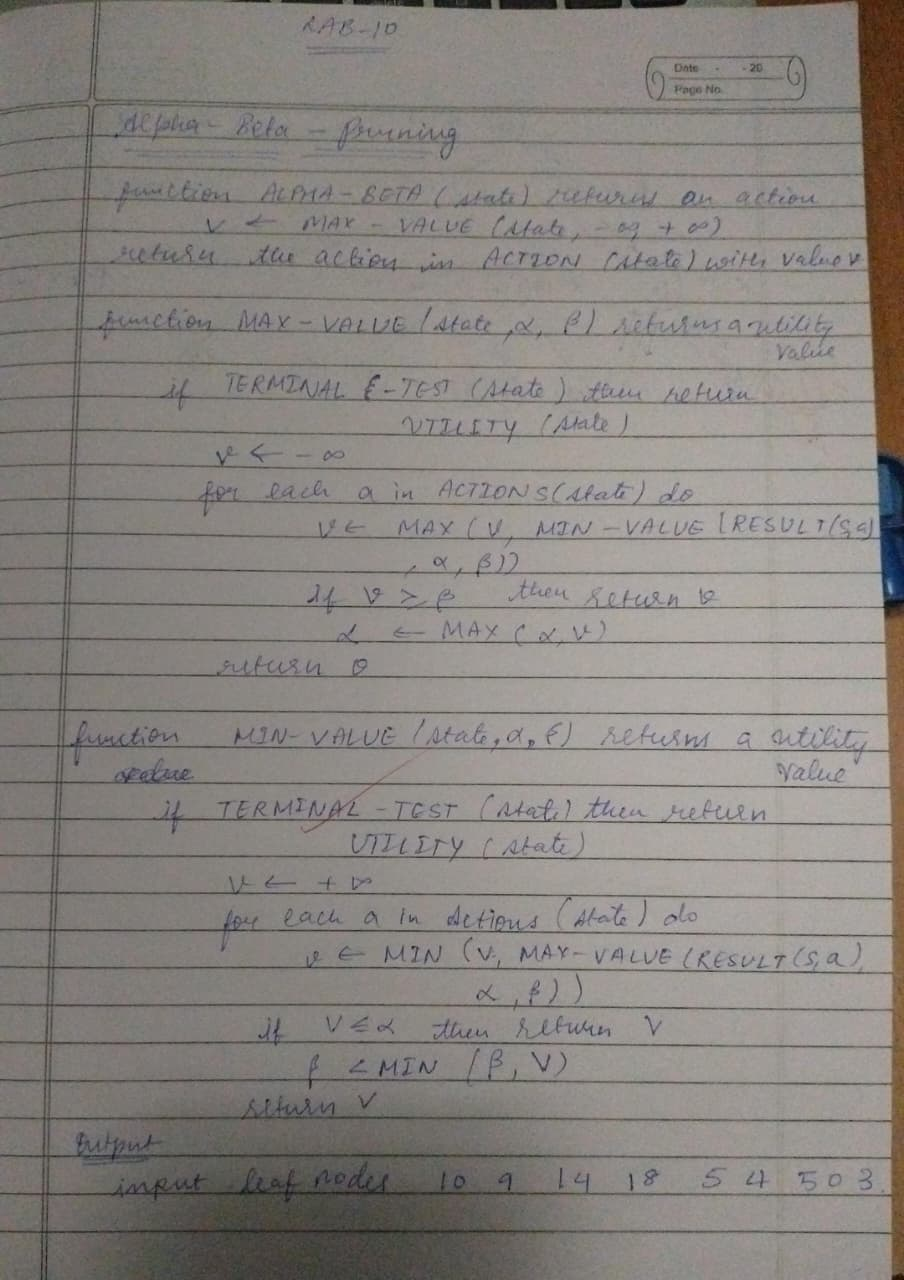 LAB-10
Date - - 20
Page No.
Alpha-Beta-Pruning
function ALPHA-BETA (state) returns an action
v ← MAX-VALUE (state, -∞, +∞)
return the action in ACTION (state) with value v
function MAX-VALUE (state, α, β) returns a utility
value
if TERMINAL -TEST (state) then return
UTILITY (state)
v ← -∞
for each a in ACTIONS(state) do
v ← MAX (V, MIN-VALUE (RESULT(s,a)
, α, β))
if v ≥ β then return v
α ← MAX (α, V)
return v
function MIN-VALUE (state, α, β) returns a utility
value
if TERMINAL-TEST (state) then return
UTILITY (state)
v ← +∞
for each a in Actions (state) do
v ← MIN (V, MAX-VALUE (RESULT (s,a),
α, β))
if V ≤ α then return V
β < MIN (β, V)
return V
Output
input leaf nodes 10 9 14 18 5 4 50 3.